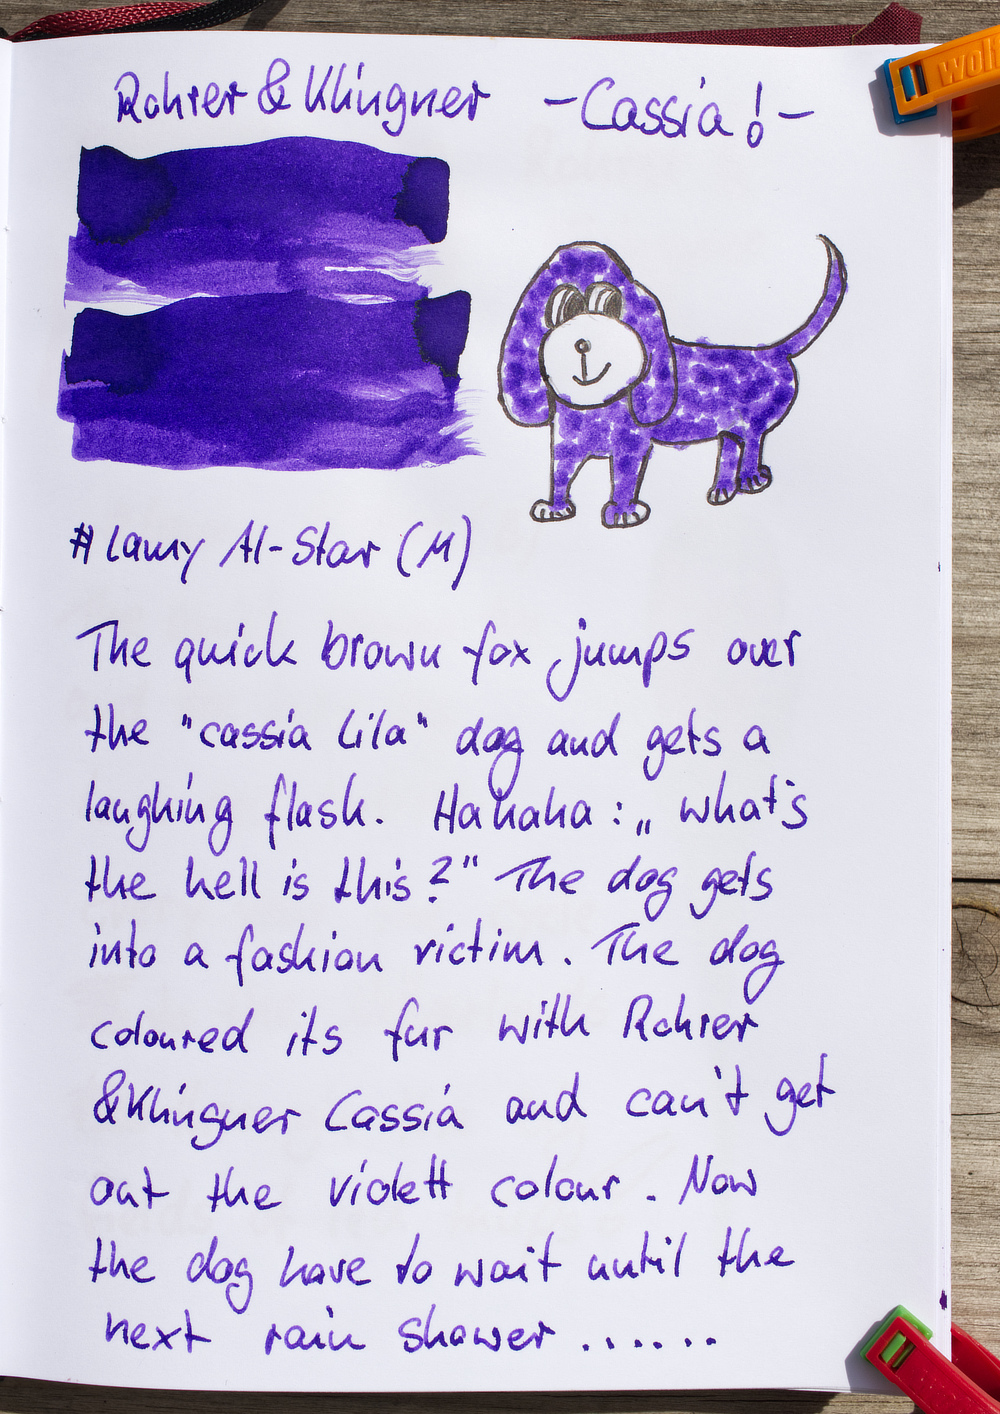 Rohrer & Klingner -Cassia!-
# Lamy Al-Star (M)
The quick brown fox jumps over
the "cassia lila" dog and gets a
laughing flash. Hahaha: „what's
the hell is this?" The dog gets
into a fashion victim. The dog
coloured its fur with Rohrer
&Klingner Cassia and can't get
out the violett colour. Now
the dog have to wait until the
next rain shower ......